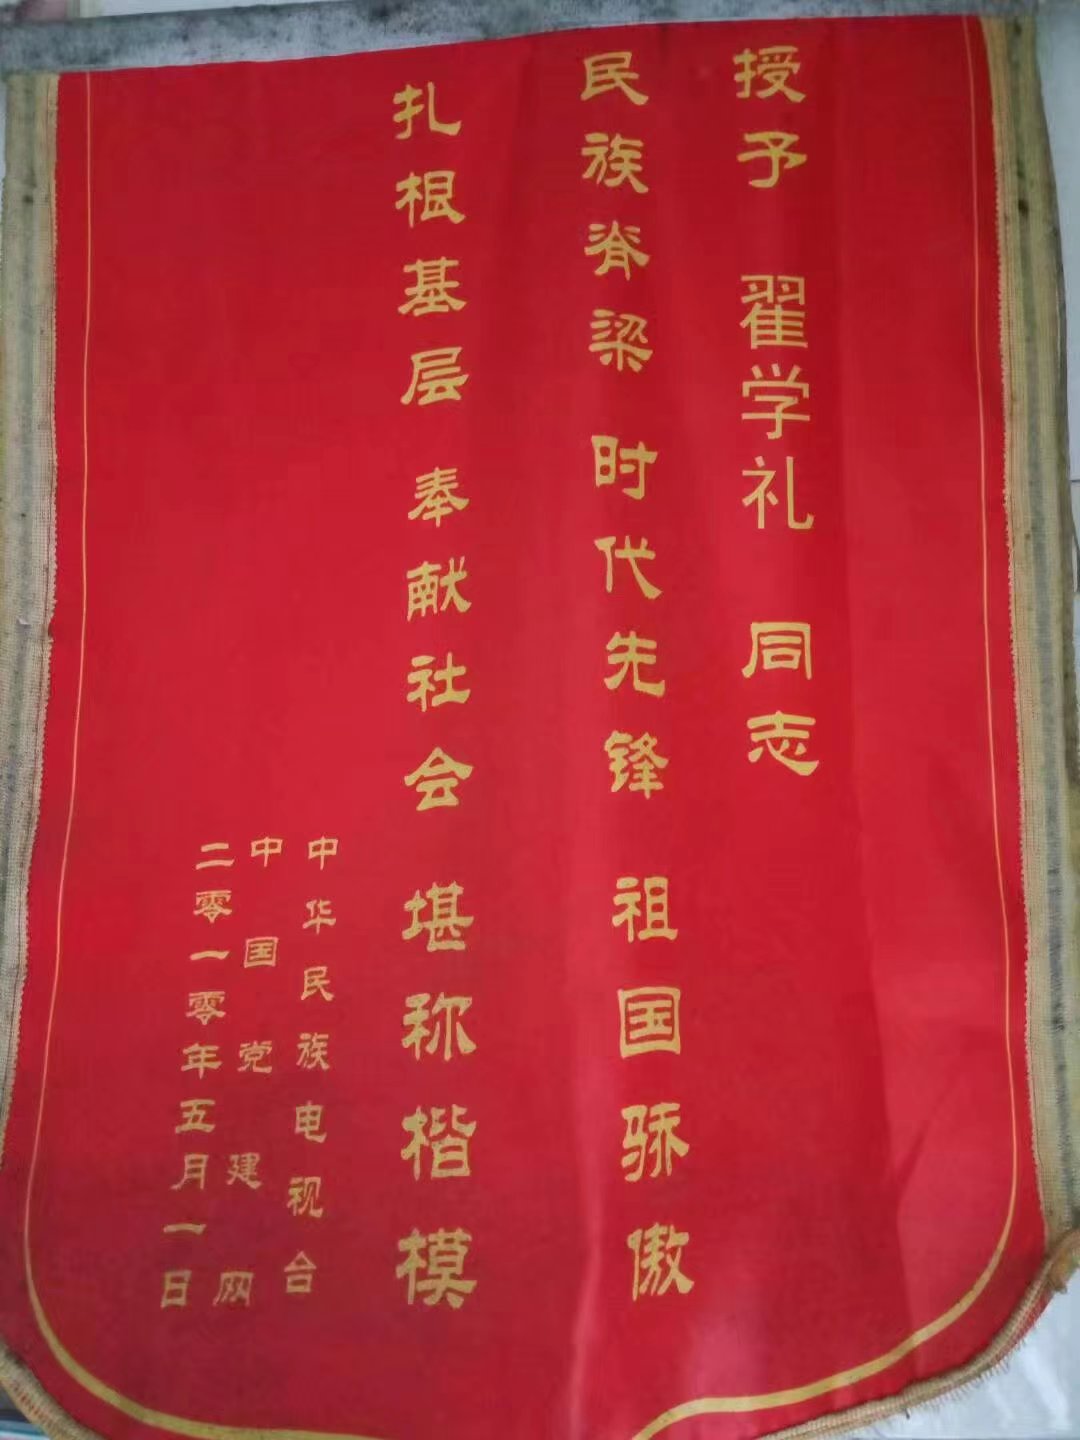 授予 翟学礼 同志
民族脊梁 时代先锋 祖国骄傲
扎根基层 奉献社会 堪称楷模
中华民族电视台
中国党建网
二零一零年五月一日